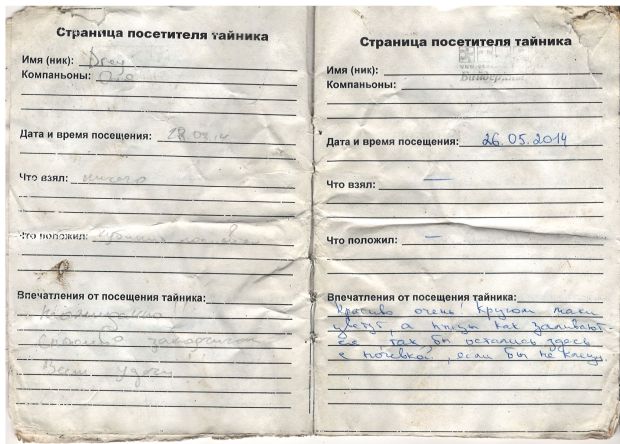 Страница посетителя тайника
Имя (ник):
Компаньоны: Оля
Дата и время посещения:
Что взял: ничего
Что положил:
Впечатления от посещения тайника:
Спасибо
Всем удачи
Страница посетителя тайника
Имя (ник):
Компаньоны:
Дата и время посещения: 26.05.2014
Что взял: —
Что положил: —
Впечатления от посещения тайника:
Красиво очень кругом маки
цветут, а птицы как заливают
ся так бы остались здесь
с ночевкой, если бы не клещи.